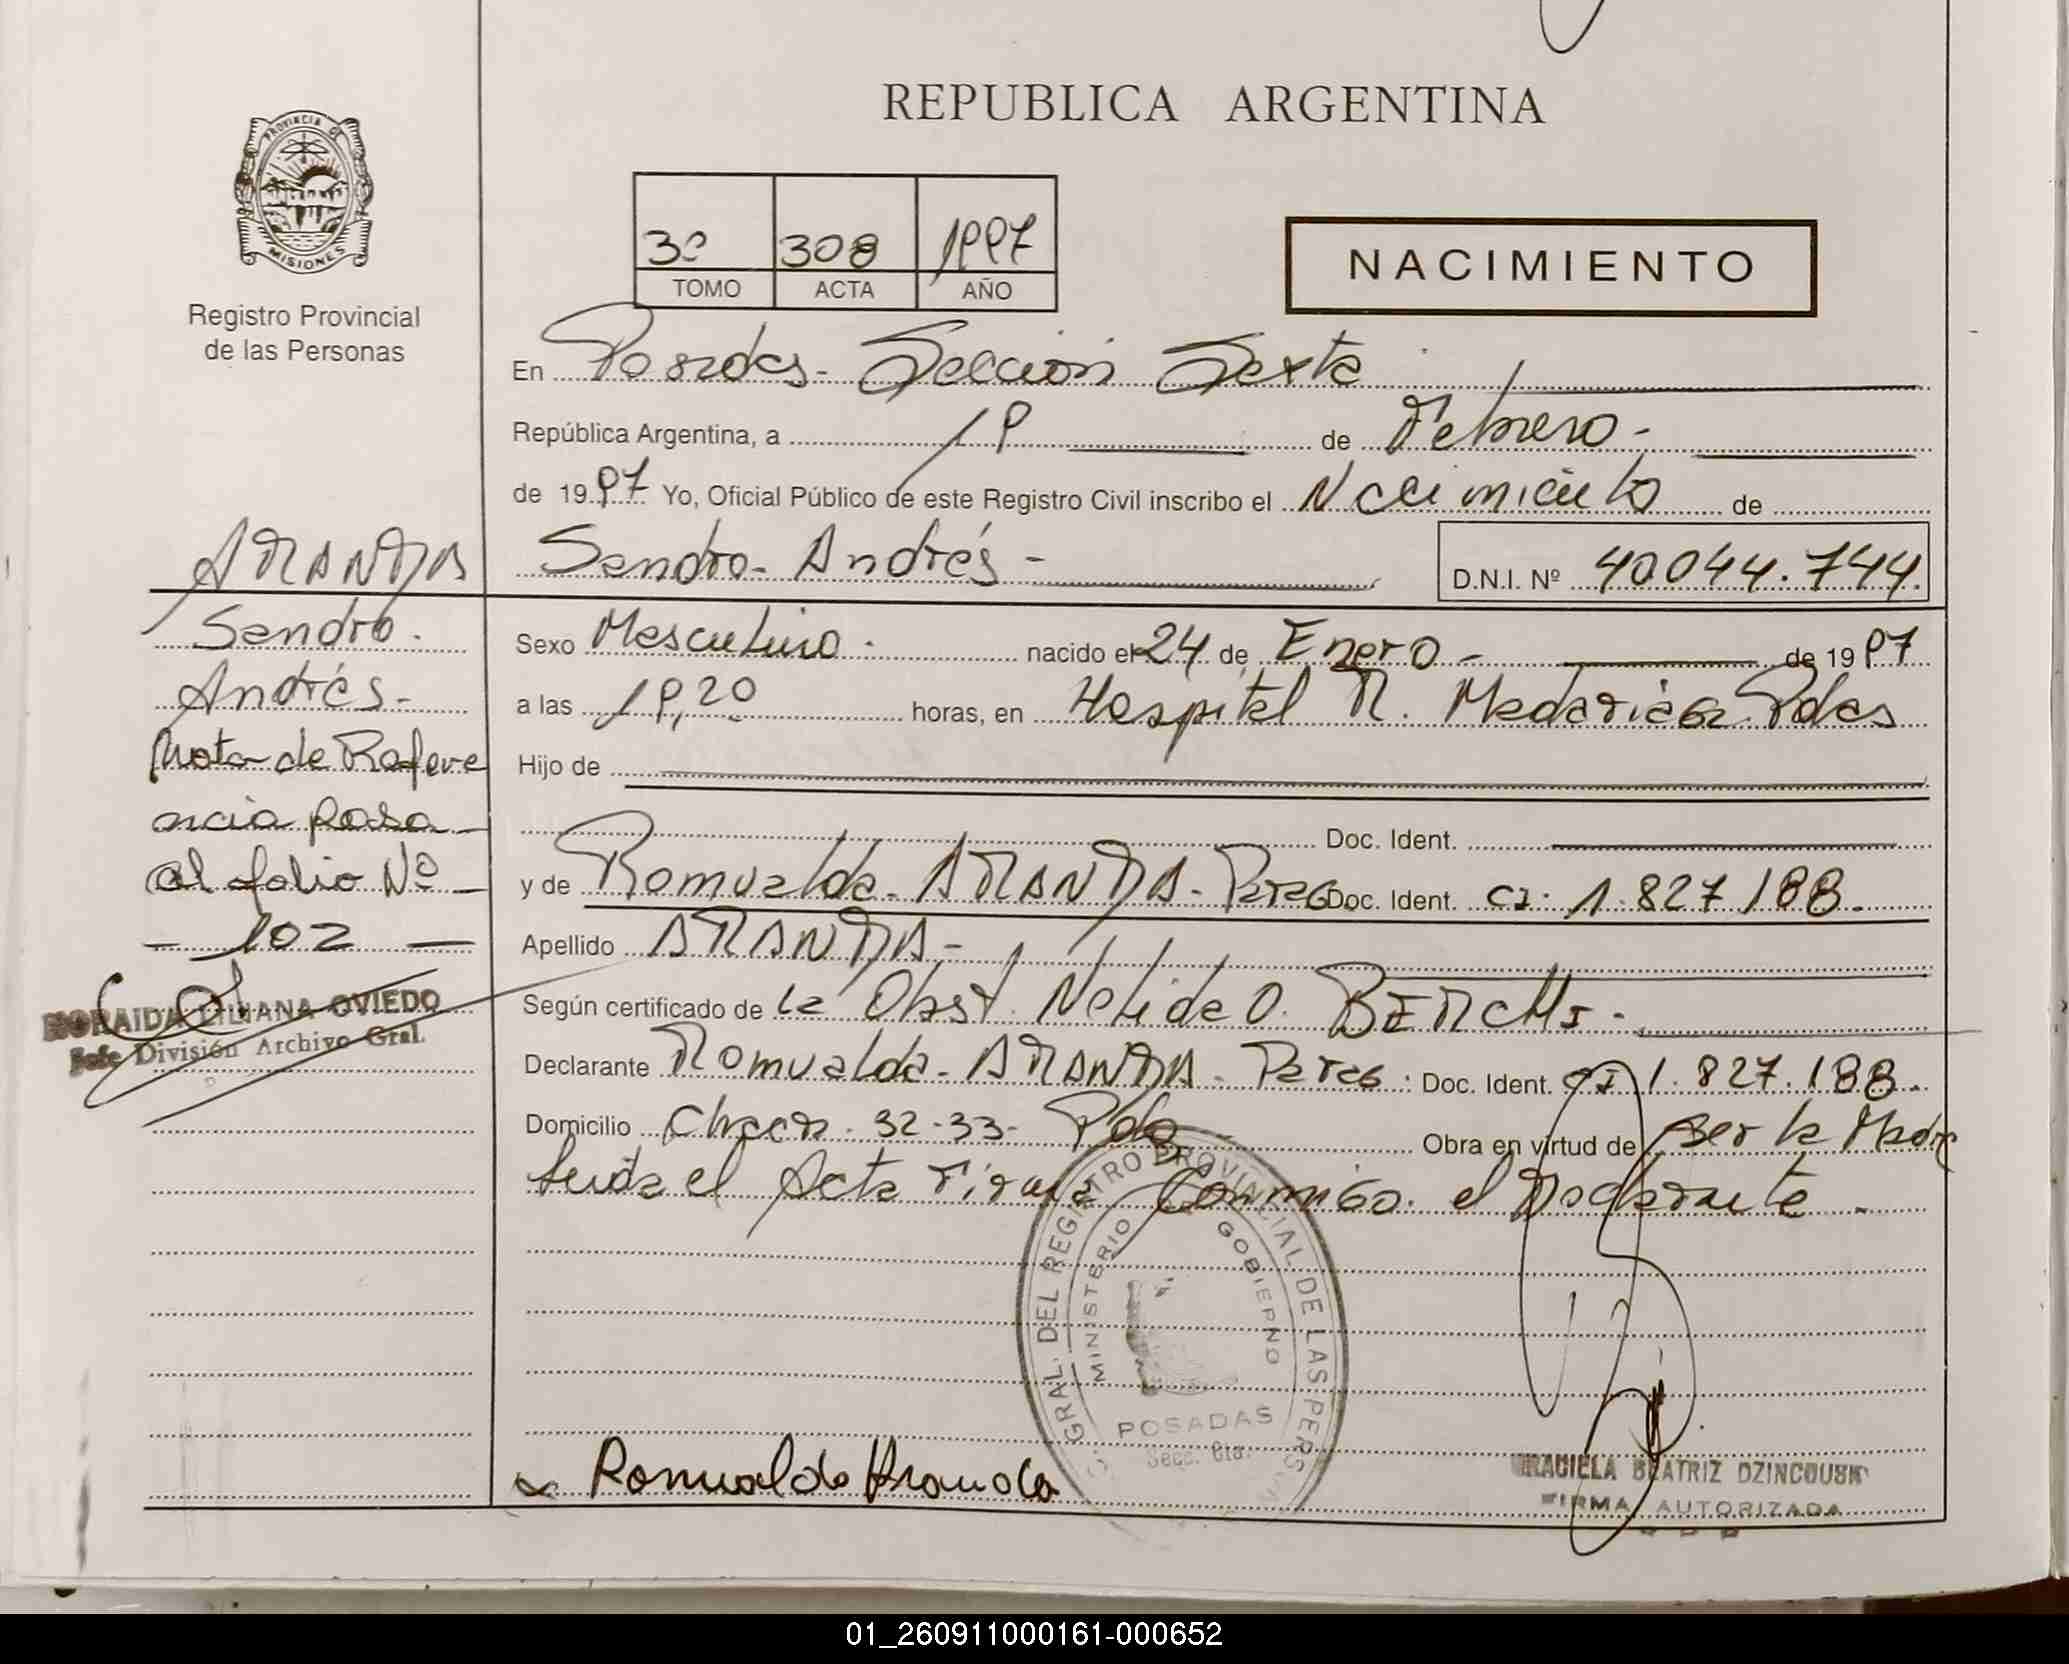 REPUBLICA ARGENTINA
PROVINCIA DE
MISIONES
Registro Provincial
de las Personas
3º 308 1997
TOMO ACTA AÑO
NACIMIENTO
En Posadas - Sección Sexta
República Argentina, a 19 de Febrero -
de 1997 Yo, Oficial Público de este Registro Civil inscribo el Nacimiento de
Sandro Andrés - D.N.I. Nº 40.044.744.
Sexo Masculino. nacido el 24 de Enero - de 1997
a las 19,20 horas, en Hospital R. Madariaga Pdas
Hijo de
Doc. Ident.
y de Romualda ARANDA - Parag Doc. Ident. CI. 1.827.188.
Apellido ARANDA -
Según certificado de la Obst. Nelida O. BERCHI -
Declarante Romualda - ARANDA - Parag. Doc. Ident. CI 1.827.188.
Domicilio Chacra 32-33 - Pdas Obra en virtud de ser la Madre
leída el Acta Firma Conmigo el Declarante.
ARANDA
Sandro.
Andrés -
Nota de Refere
ncia pasa -
al folio Nº -
- 102 -
NORAIDA LILIANA OVIEDO
Jefe División Archivo Gral.
GRAL. DEL REGISTRO PROVINCIAL DE LAS PERS
MINISTERIO GOBIERNO
POSADAS
Secc. 6ta.
Romualda Aranda
GRACIELA BEATRIZ DZINCOUSKI
FIRMA AUTORIZADA
01_260911000161-000652